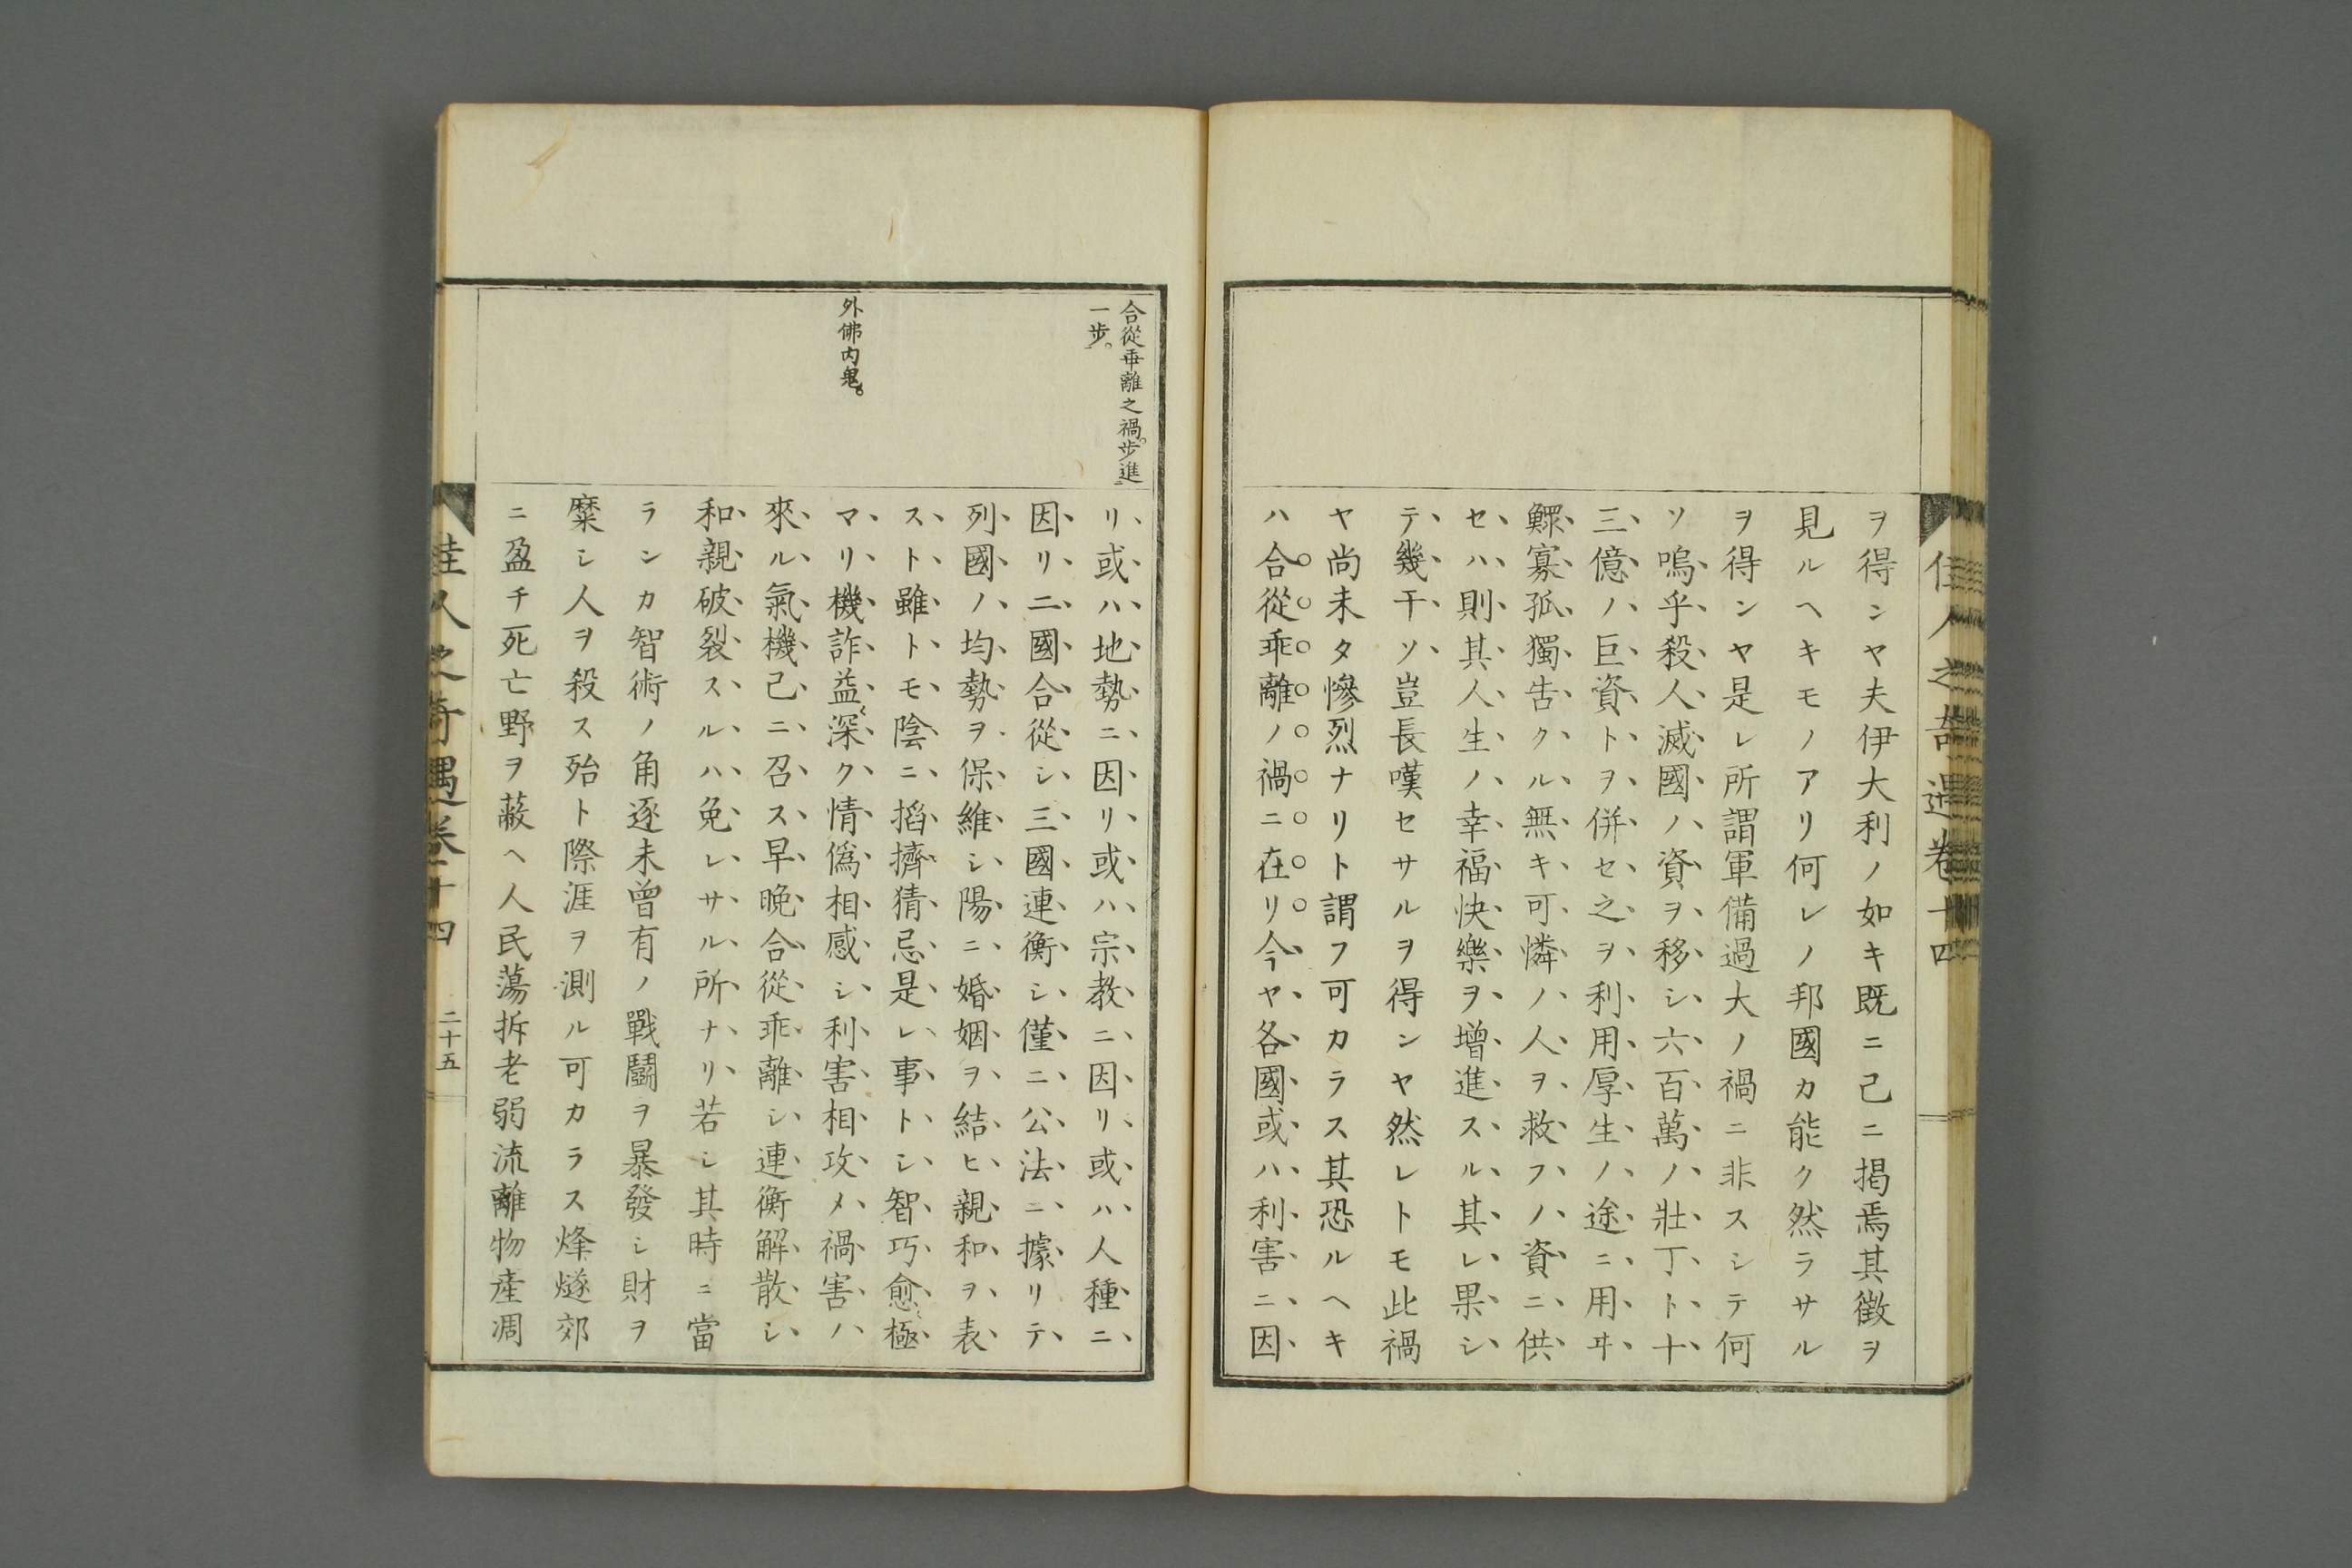 佳人之奇遇卷十四
ヲ得ンヤ夫伊大利ノ如キ既ニ己ニ揭焉其徵ヲ
見ルヘキモノアリ何レノ邦國カ能ク然ラサル
ヲ得ンヤ是レ所謂軍備過大ノ禍ニ非スシテ何
ソ嗚乎殺人滅國ノ資ヲ移シ六百萬ノ壯丁ト十
三億ノ巨資トヲ併セ之ヲ利用厚生ノ途ニ用ヰ
鰥寡孤獨告クル無キ可憐ノ人ヲ救フノ資ニ供
セハ則其人生ノ幸福快樂ヲ增進スル其レ果シ
テ幾干ソ豈長嘆セサルヲ得ンヤ然レトモ此禍
ヤ尚未タ慘烈ナリト謂フ可カラス其恐ルヘキ
ハ合從乖離ノ禍ニ在リ今ヤ各國或ハ利害ニ因
合從乖離之禍。步進
一步。
リ或ハ地勢ニ因リ或ハ宗教ニ因リ或ハ人種ニ
因リ二國合從シ三國連衡シ僅ニ公法ニ據リテ
列國ノ均勢ヲ保維シ陽ニ婚姻ヲ結ヒ親和ヲ表
スト雖トモ陰ニ搯擠猜忌是レ事トシ智巧愈極
外佛内鬼。
マリ機詐益深ク情僞相感シ利害相攻メ禍害ハ
來ル氣機己ニ召ス早晚合從乖離シ連衡解散シ
和親破裂スルハ免レサル所ナリ若シ其時ニ當
ランカ智術ノ角逐未曾有ノ戰鬪ヲ暴發シ財ヲ
糜シ人ヲ殺ス殆ト際涯ヲ測ル可カラス烽燧郊
ニ盈チ死亡野ヲ蔽ヘ人民蕩拆老弱流離物產凋
佳人之奇遇卷十四
二十五